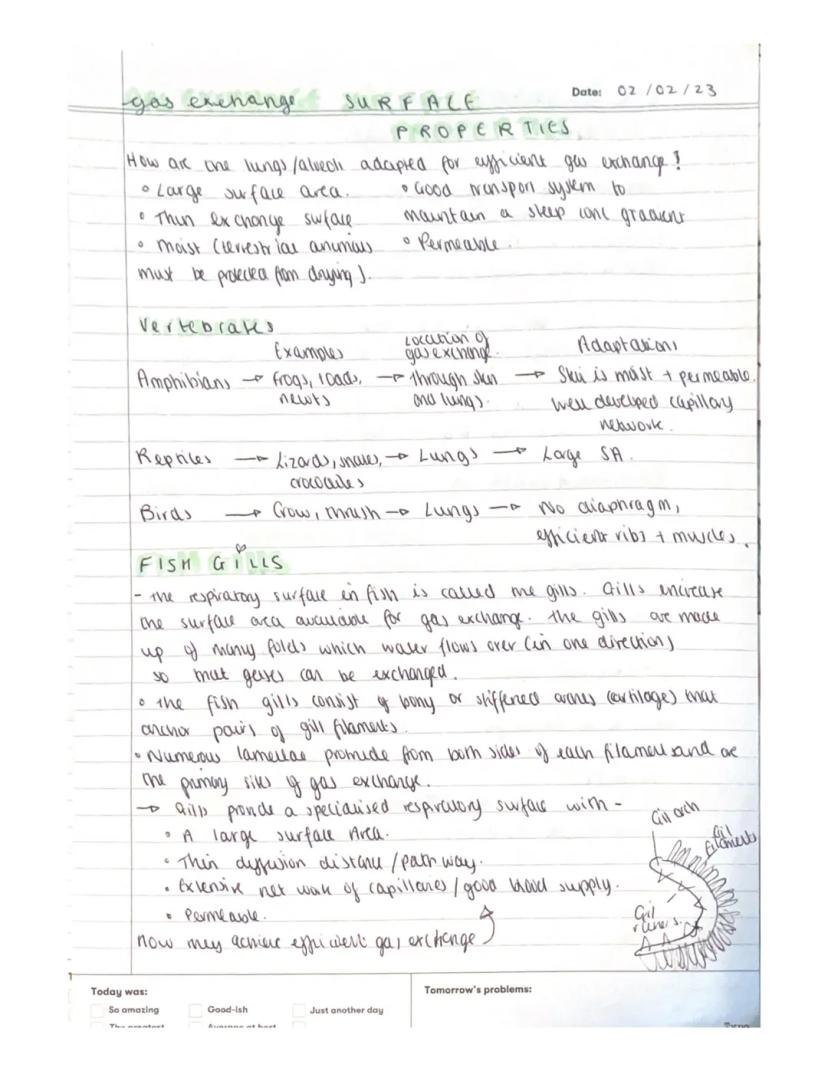 gas exchange SURFACE
Date: 02/02/23
PROPERTIES
How are the lungs/alveoli adapted for efficient gas exchange?
• Large surface area. • Good transport system to
• Thin exchange surface maintain a steep conc gradient
• Moist (terrestrial animals • Permeable.
must be protected from drying).
Vertebrates
Examples Location of gas exchange. Adaptations
Amphibians → frogs, toads, → Through skin → Skin is moist + permeable.
newts and lungs. Well developed capillary
network.
Reptiles → Lizards, snakes, → Lungs → Large SA.
crocodiles
Birds → Crow, thrush → Lungs → No diaphragm,
efficient ribs + muscles.
FISH GILLS
- The respiratory surface in fish is called the gills. Gills increase
the surface area available for gas exchange. The gills are made
up of many folds which water flows over (in one direction)
so that gases can be exchanged.
• The fish gills consist of bony or stiffened arches (cartilage) that
anchor pairs of gill filaments.
• Numerous lamellae protrude from both sides of each filament and are
the primary sites of gas exchange.
→ Gills provide a specialised respiratory surface with -
• A large surface Area.
• Thin diffusion distance/pathway.
• Extensive network of capillaries/good blood supply.
• Permeable.
how they achieve efficient gas exchange
Gill arch
Gill filaments
Gill rakers.
Today was:
So amazing Good-ish Just another day
The greatest Average at best
Tomorrow's problems: